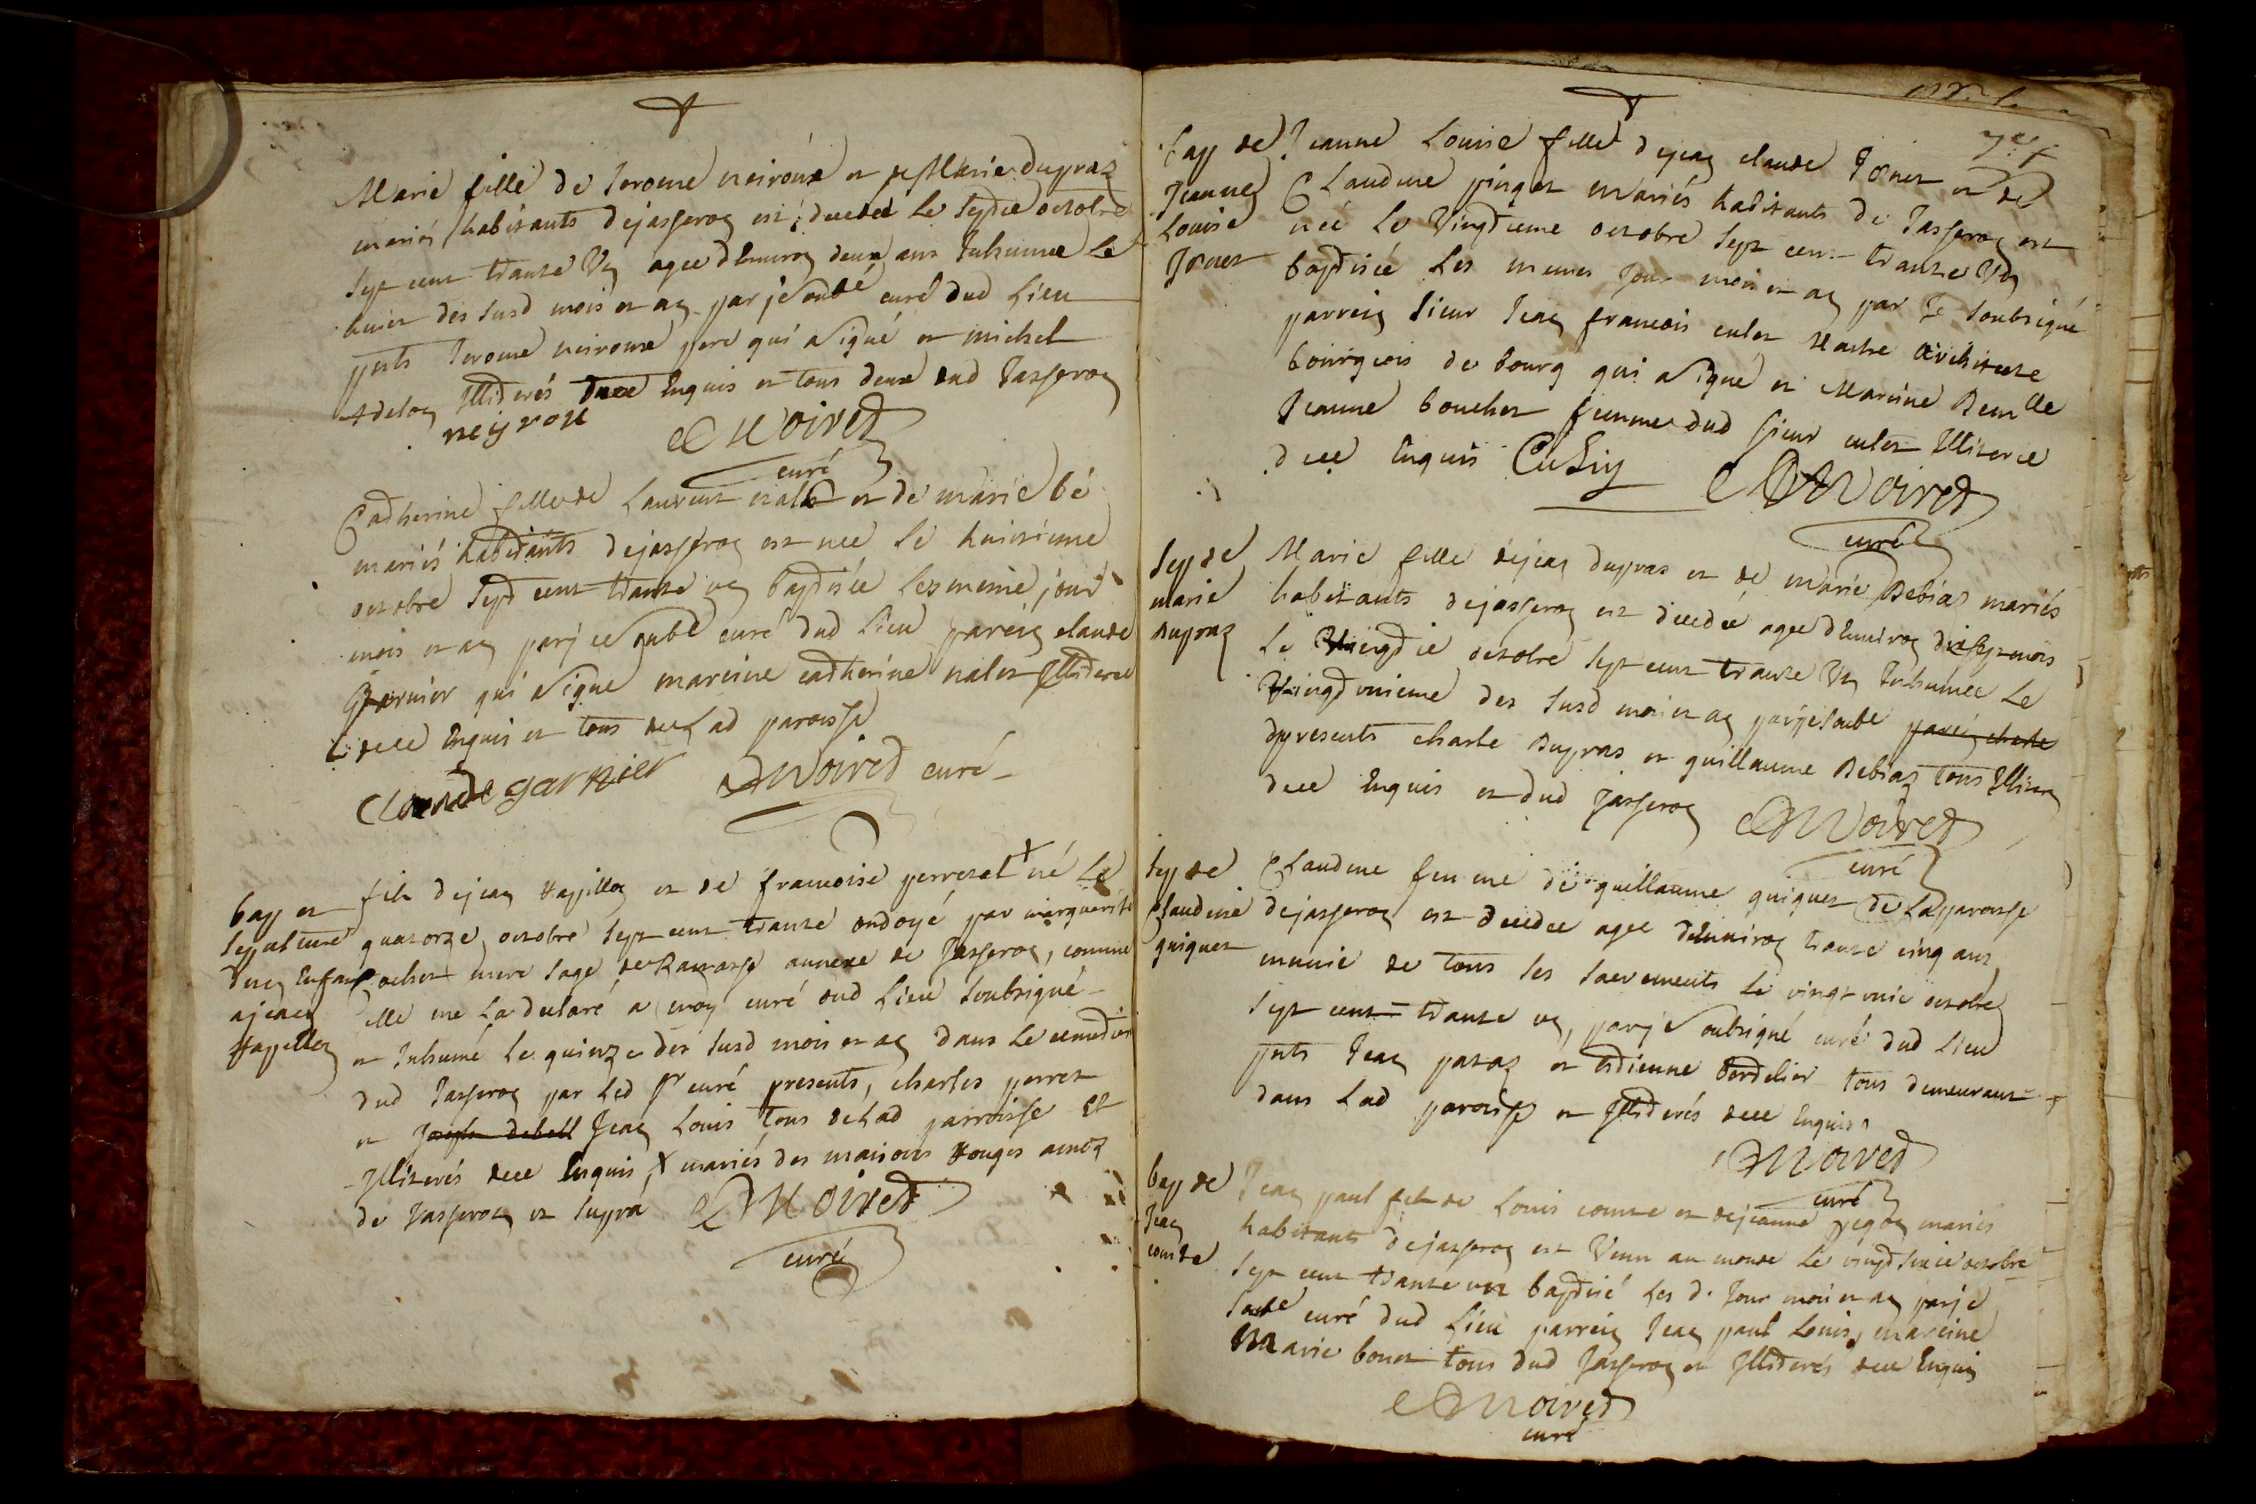 Marie fille de Jerome neiroux et de Marie dupraz
mariés habitants dejasseron est decedeé le septie octobre
sept cent trante Un agee d'Environ deux ans Inhumee le
huict des susd mois et an par je soubé curé dud Lieu
pnts Jerome neiroux pere qui a signé et michel
Adelon Illiterés dece Enquis et tous deux dud Jasseron
neyrou
Noiret
curé
Catherine fille de Laurent nalet et de marie bé
mariés habitants dejasseron est nee le huictieme
octobre sept cent trante un baptisée les meme jour
mois et an par je soubé curé dud Lieu parein claude
Garnier qui a signe mareine catherine nalet Illiteree
dece Enquis et tous de Lad paroisse
Claude garnier Noiret curé
bap et
sepulture
dun Enfant
a jean
fils dejean et de francoise perretal + né le
quatorze octobre sept cent trante ondoyé par marguerite
mere sage de Ramasse annexe de Jasseron, comme
elle me La declaré a moy curé dud Lieu soubsigné
et Inhumé le quinze des susd mois et an dans le cemetier
dud Jasseron par Led sr curé presents, charles perret
et Jean Louis tous de Lad parroisse et
Illiterés dece Enquis, + mariés des maisons Rouges
de Jasseron ut supra Noiret
curé
bap de
Jeanne
Louise
Jeanne Louise fille dejean claude et de
Claudine pinget mariés habitants de Jasseron est
neé le Vingtieme octobre sept cent trante Un
baptisée les memes Jour mois et an par Je soubsigné
parrein sieur Jean francois culet Maitre Architecte
bourgeois de bourg qui a signé et Mareine Demlle
Jeanne bouchet femme dud sieur culet Illiteree
dece Enquis Noiret
curé
sep de
marie
Dupraz
Marie fille dejean dupras et de marie Debiaz mariés
habitants dejasseron est decedeé agee d'Environ dixsept mois
Le Vingtie octobre sept cent trante Un Inhumee Le
Vingt unieme des susd mois et an par je soubé parein charle
presents charle Dupras et guillaume Debiaz tous Illiterés
dece Enquis et dud Jasseron Noiret
curé
sep de
Claudine
guiguet
Claudine femme de guillaume guiguet de La parroisse
dejasseron est decedee agee d'Environ trante cinq ans
munie de tous les sacrements le vingt unie octobre
sept cent trante un, par je soubsigné curé dud Lieu
pnts Jean et Etienne tous demeurant
dans Lad paroisse et Illiterés dece Enquis
Noiret
curé
bap de
Jean
comte
Jean paul fils de Louis comte et dejeanne mariés
habitants dejasseron est Venu au monde le vingt sixie octobre
sept cent trante un baptisé les d. Jour mois et an par je
soubé curé dud Lieu parrein Jean paul Louis, mareine
Marie bonet tous dud Jasseron et Illiterés dece Enquis
Noiret
curé